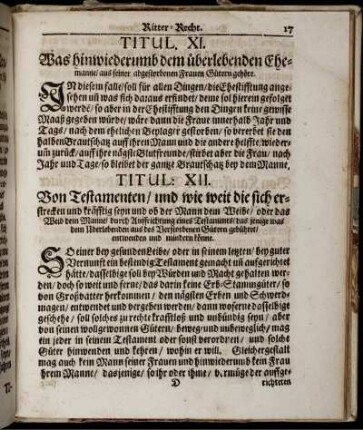 Ritter-Recht. 17
TITUL. XI.
Was hinwiederumb dem überlebenden Ehe-
manne/ aus seiner abgestorbenen Frauen Gütern gehöre.
IN diesem falle/ soll für allen Dingen/ die Ehestifftung ange-
sehen und was sich daraus erfindet/ deme sol hierein gefolget
werdē/ so aber in der Ehestifftung den Dingen keine gewisse
Maaß gegeben würde/ wäre dann die Fraue innerhalb Jahr und
Tage/ nach dem ehelichen Beylager gestorben/ so vererbet sie den
halben Brautschatz auff ihren Mann und die andere helfte/ wieder-
um zurück/ auff ihre nägste Blutfreunde/ stürbet aber die Frau/ nach
Jahr und Tage/ so bleibet der gantze Brautschatz bey dem Manne.
TITUL: XII.
Von Testamenten/ und wie weit die sich er-
strecken und kräfftig seyn und ob der Mann dem Weibe/ oder das
Weib dem Manne durch Auffrichtung eines Testaments/ das jenige was
dem Uberlebenden aus des Verstorbenen Gütern gebühret/
entwenden und mindern könne.
SO einer bey gesunden Leibe/ oder in seinem letzten/ bey guter
Vernunft ein beständig Testament gemacht uñ aufgerichtet
hätte/ dasselbige soll bey Würden und Macht gehalten wer-
den/ doch so weit und ferne/ das darin keine Erb-Stammgüter/ so
von Großvatter herkommen/ den nägsten Erben und Schwerd-
magen/ entwendet und vergeben werden/ dann woferne dasselbige
geschehe/ soll solches zu rechte krafftloß und unbündig seyn/ aber
von seinen wollgewonnen Gütern/ beweg-und unbeweglich/ mag
ein jeder in seinem Testament oder sonst verordnen/ und solche
Güter hinwenden und kehren/ wohin er will. Gleichergestalt
mag auch kein Mann seiner Frauen und hinwiederumb kein Frau
ihrem Manne/ dasjenige/ so ihr oder ihme/ vermüge der auffge-
D richteten